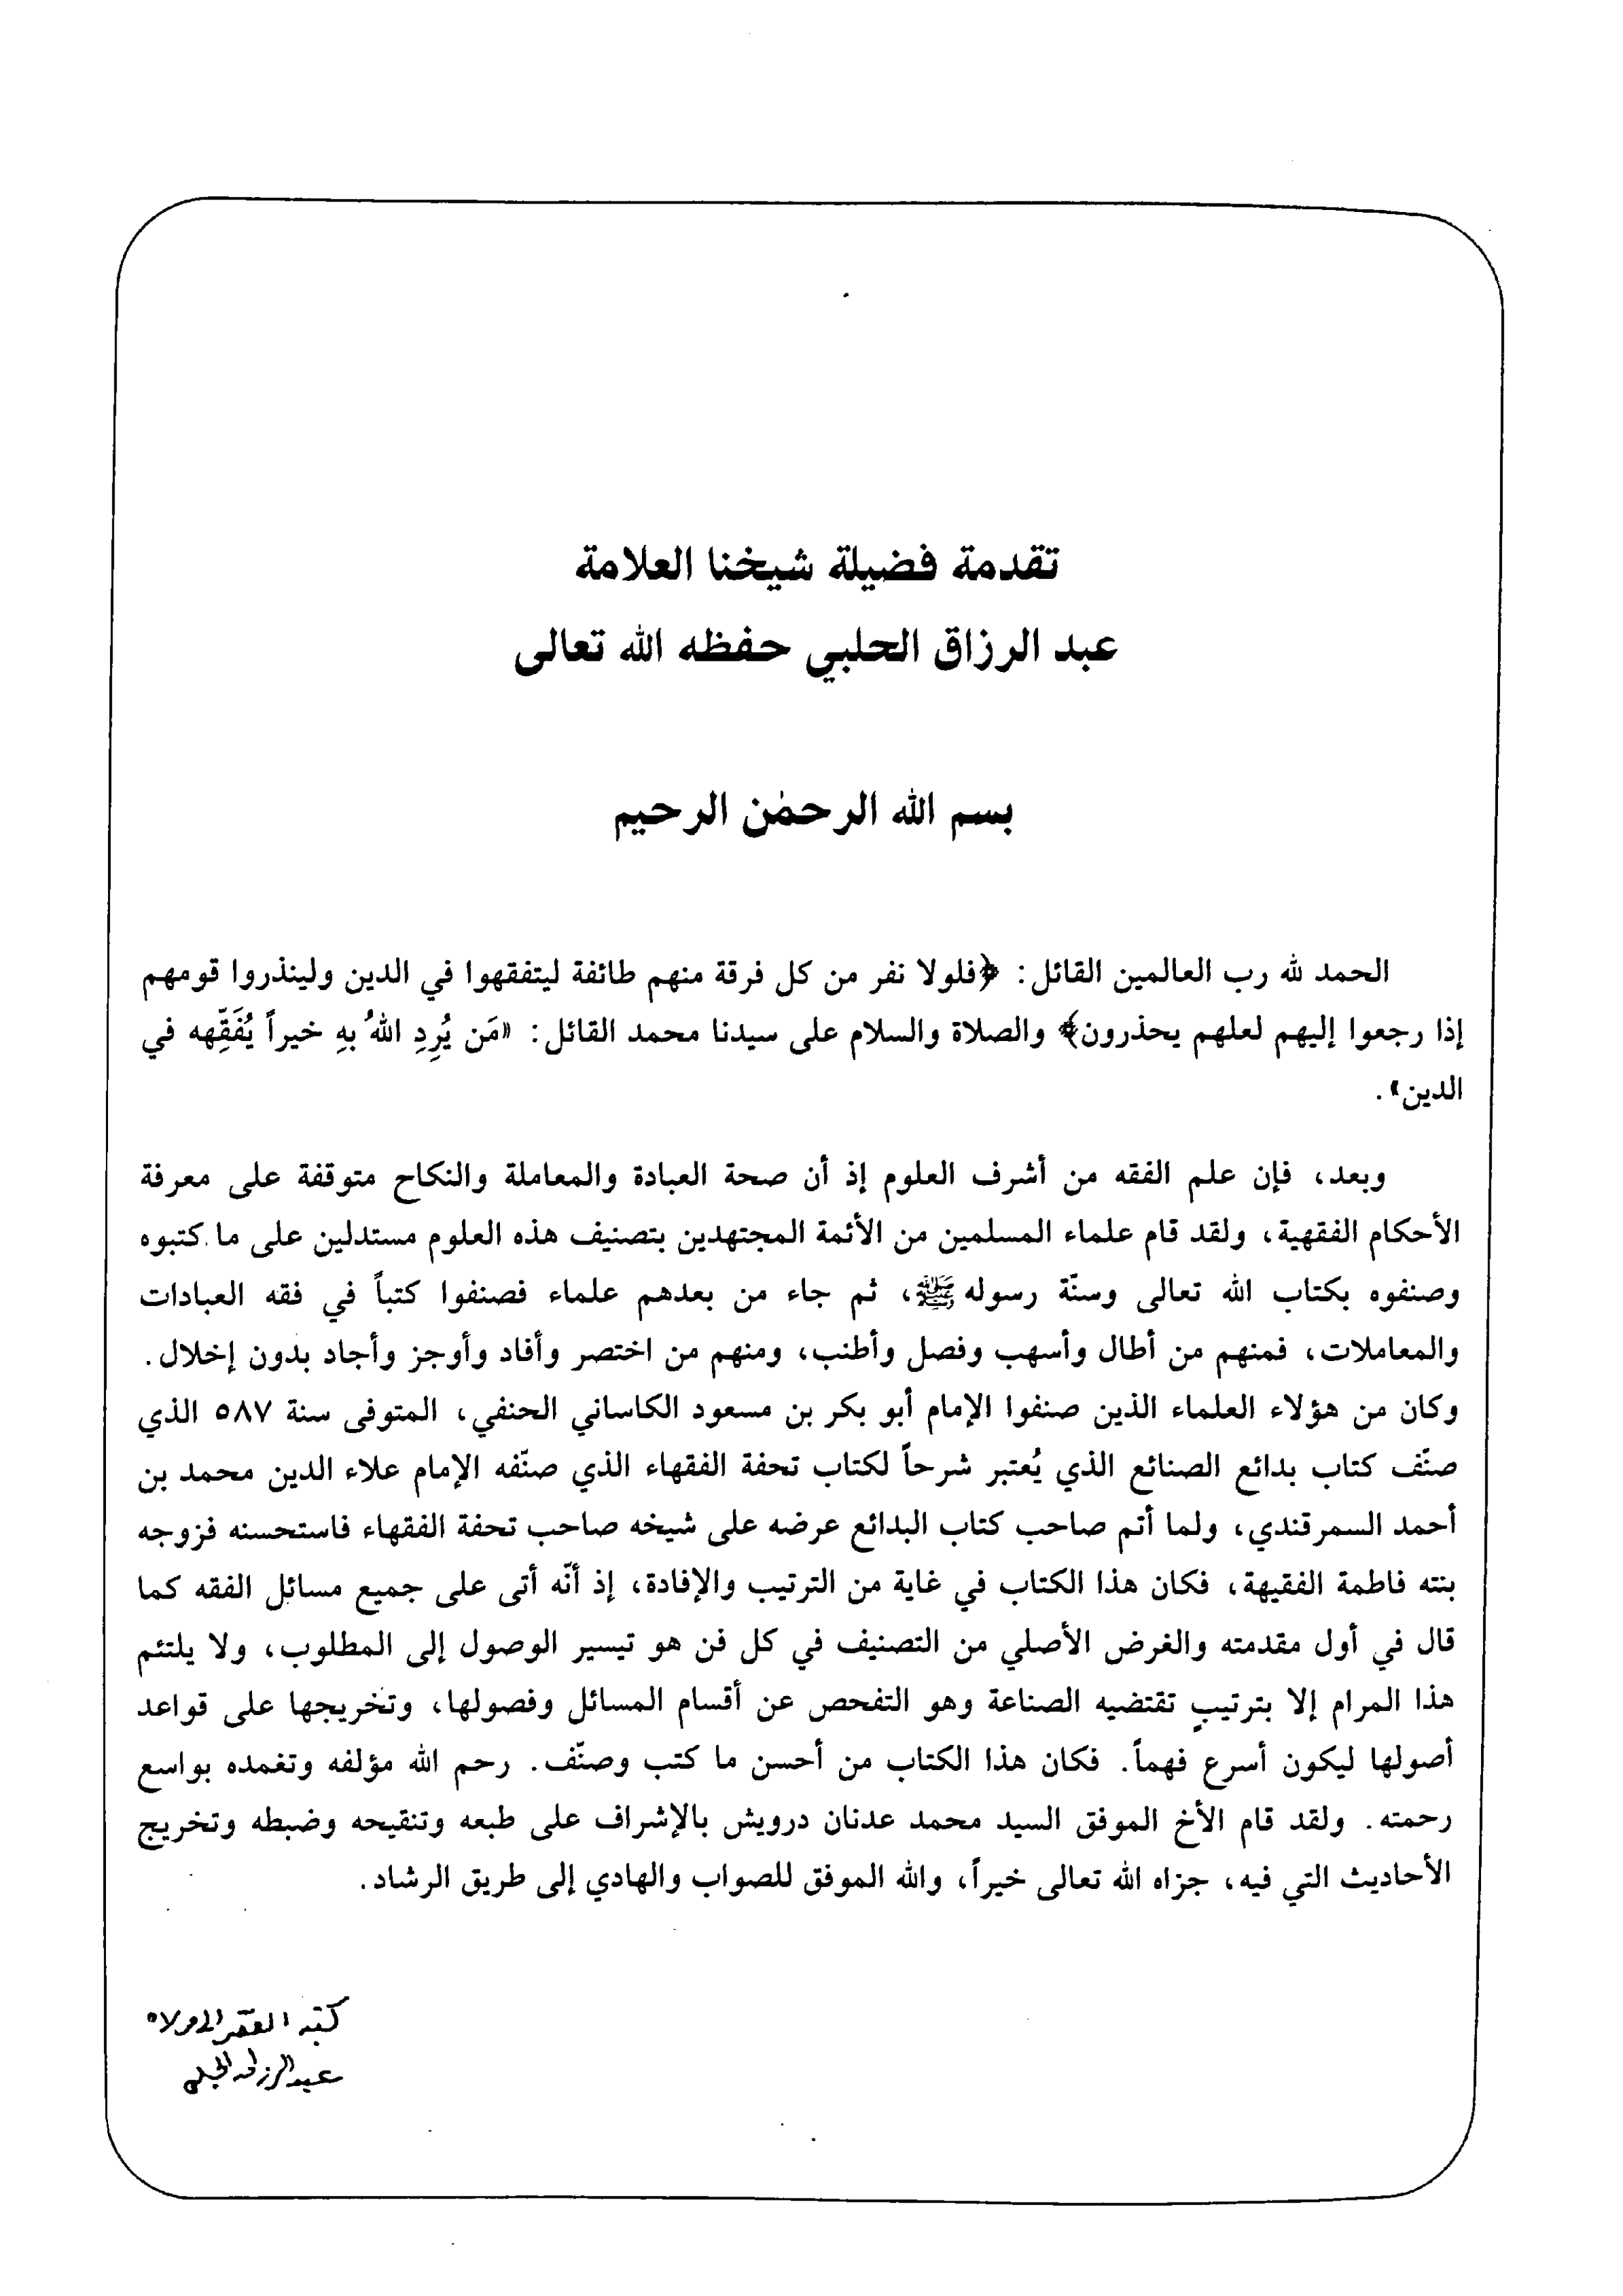 تقدمة فضيلة شيخنا العلامة
عبد الرزاق الحلبي حفظه الله تعالى
بسم الله الرحمٰن الرحيم
الحمد لله رب العالمين القائل: ﴿فلولا نفر من كل فرقة منهم طائفة ليتفقهوا في الدين ولينذروا قومهم
إذا رجعوا إليهم لعلهم يحذرون﴾ والصلاة والسلام على سيدنا محمد القائل: «مَن يُرِدِ اللهُ بهِ خيراً يُفَقِّهه في
الدين».
وبعد، فإن علم الفقه من أشرف العلوم إذ أن صحة العبادة والمعاملة والنكاح متوقفة على معرفة
الأحكام الفقهية، ولقد قام علماء المسلمين من الأئمة المجتهدين بتصنيف هذه العلوم مستدلين على ما كتبوه
وصنفوه بكتاب الله تعالى وسنّة رسوله ﷺ، ثم جاء من بعدهم علماء فصنفوا كتباً في فقه العبادات
والمعاملات، فمنهم من أطال وأسهب وفصل وأطنب، ومنهم من اختصر وأفاد وأوجز وأجاد بدون إخلال.
وكان من هؤلاء العلماء الذين صنفوا الإمام أبو بكر بن مسعود الكاساني الحنفي، المتوفى سنة ٥٨٧ الذي
صنّف كتاب بدائع الصنائع الذي يُعتبر شرحاً لكتاب تحفة الفقهاء الذي صنّفه الإمام علاء الدين محمد بن
أحمد السمرقندي، ولما أتم صاحب كتاب البدائع عرضه على شيخه صاحب تحفة الفقهاء فاستحسنه فزوجه
بنته فاطمة الفقيهة، فكان هذا الكتاب في غاية من الترتيب والإفادة، إذ أنّه أتى على جميع مسائل الفقه كما
قال في أول مقدمته والغرض الأصلي من التصنيف في كل فن هو تيسير الوصول إلى المطلوب، ولا يلتئم
هذا المرام إلا بترتيبٍ تقتضيه الصناعة وهو التفحص عن أقسام المسائل وفصولها، وتخريجها على قواعد
أصولها ليكون أسرع فهماً. فكان هذا الكتاب من أحسن ما كتب وصنّف. رحم الله مؤلفه وتغمده بواسع
رحمته. ولقد قام الأخ الموفق السيد محمد عدنان درويش بالإشراف على طبعه وتنقيحه وضبطه وتخريج
الأحاديث التي فيه، جزاه الله تعالى خيراً، والله الموفق للصواب والهادي إلى طريق الرشاد.
كتبه الفقير إلى مولاه
عبد الرزاق الحلبي